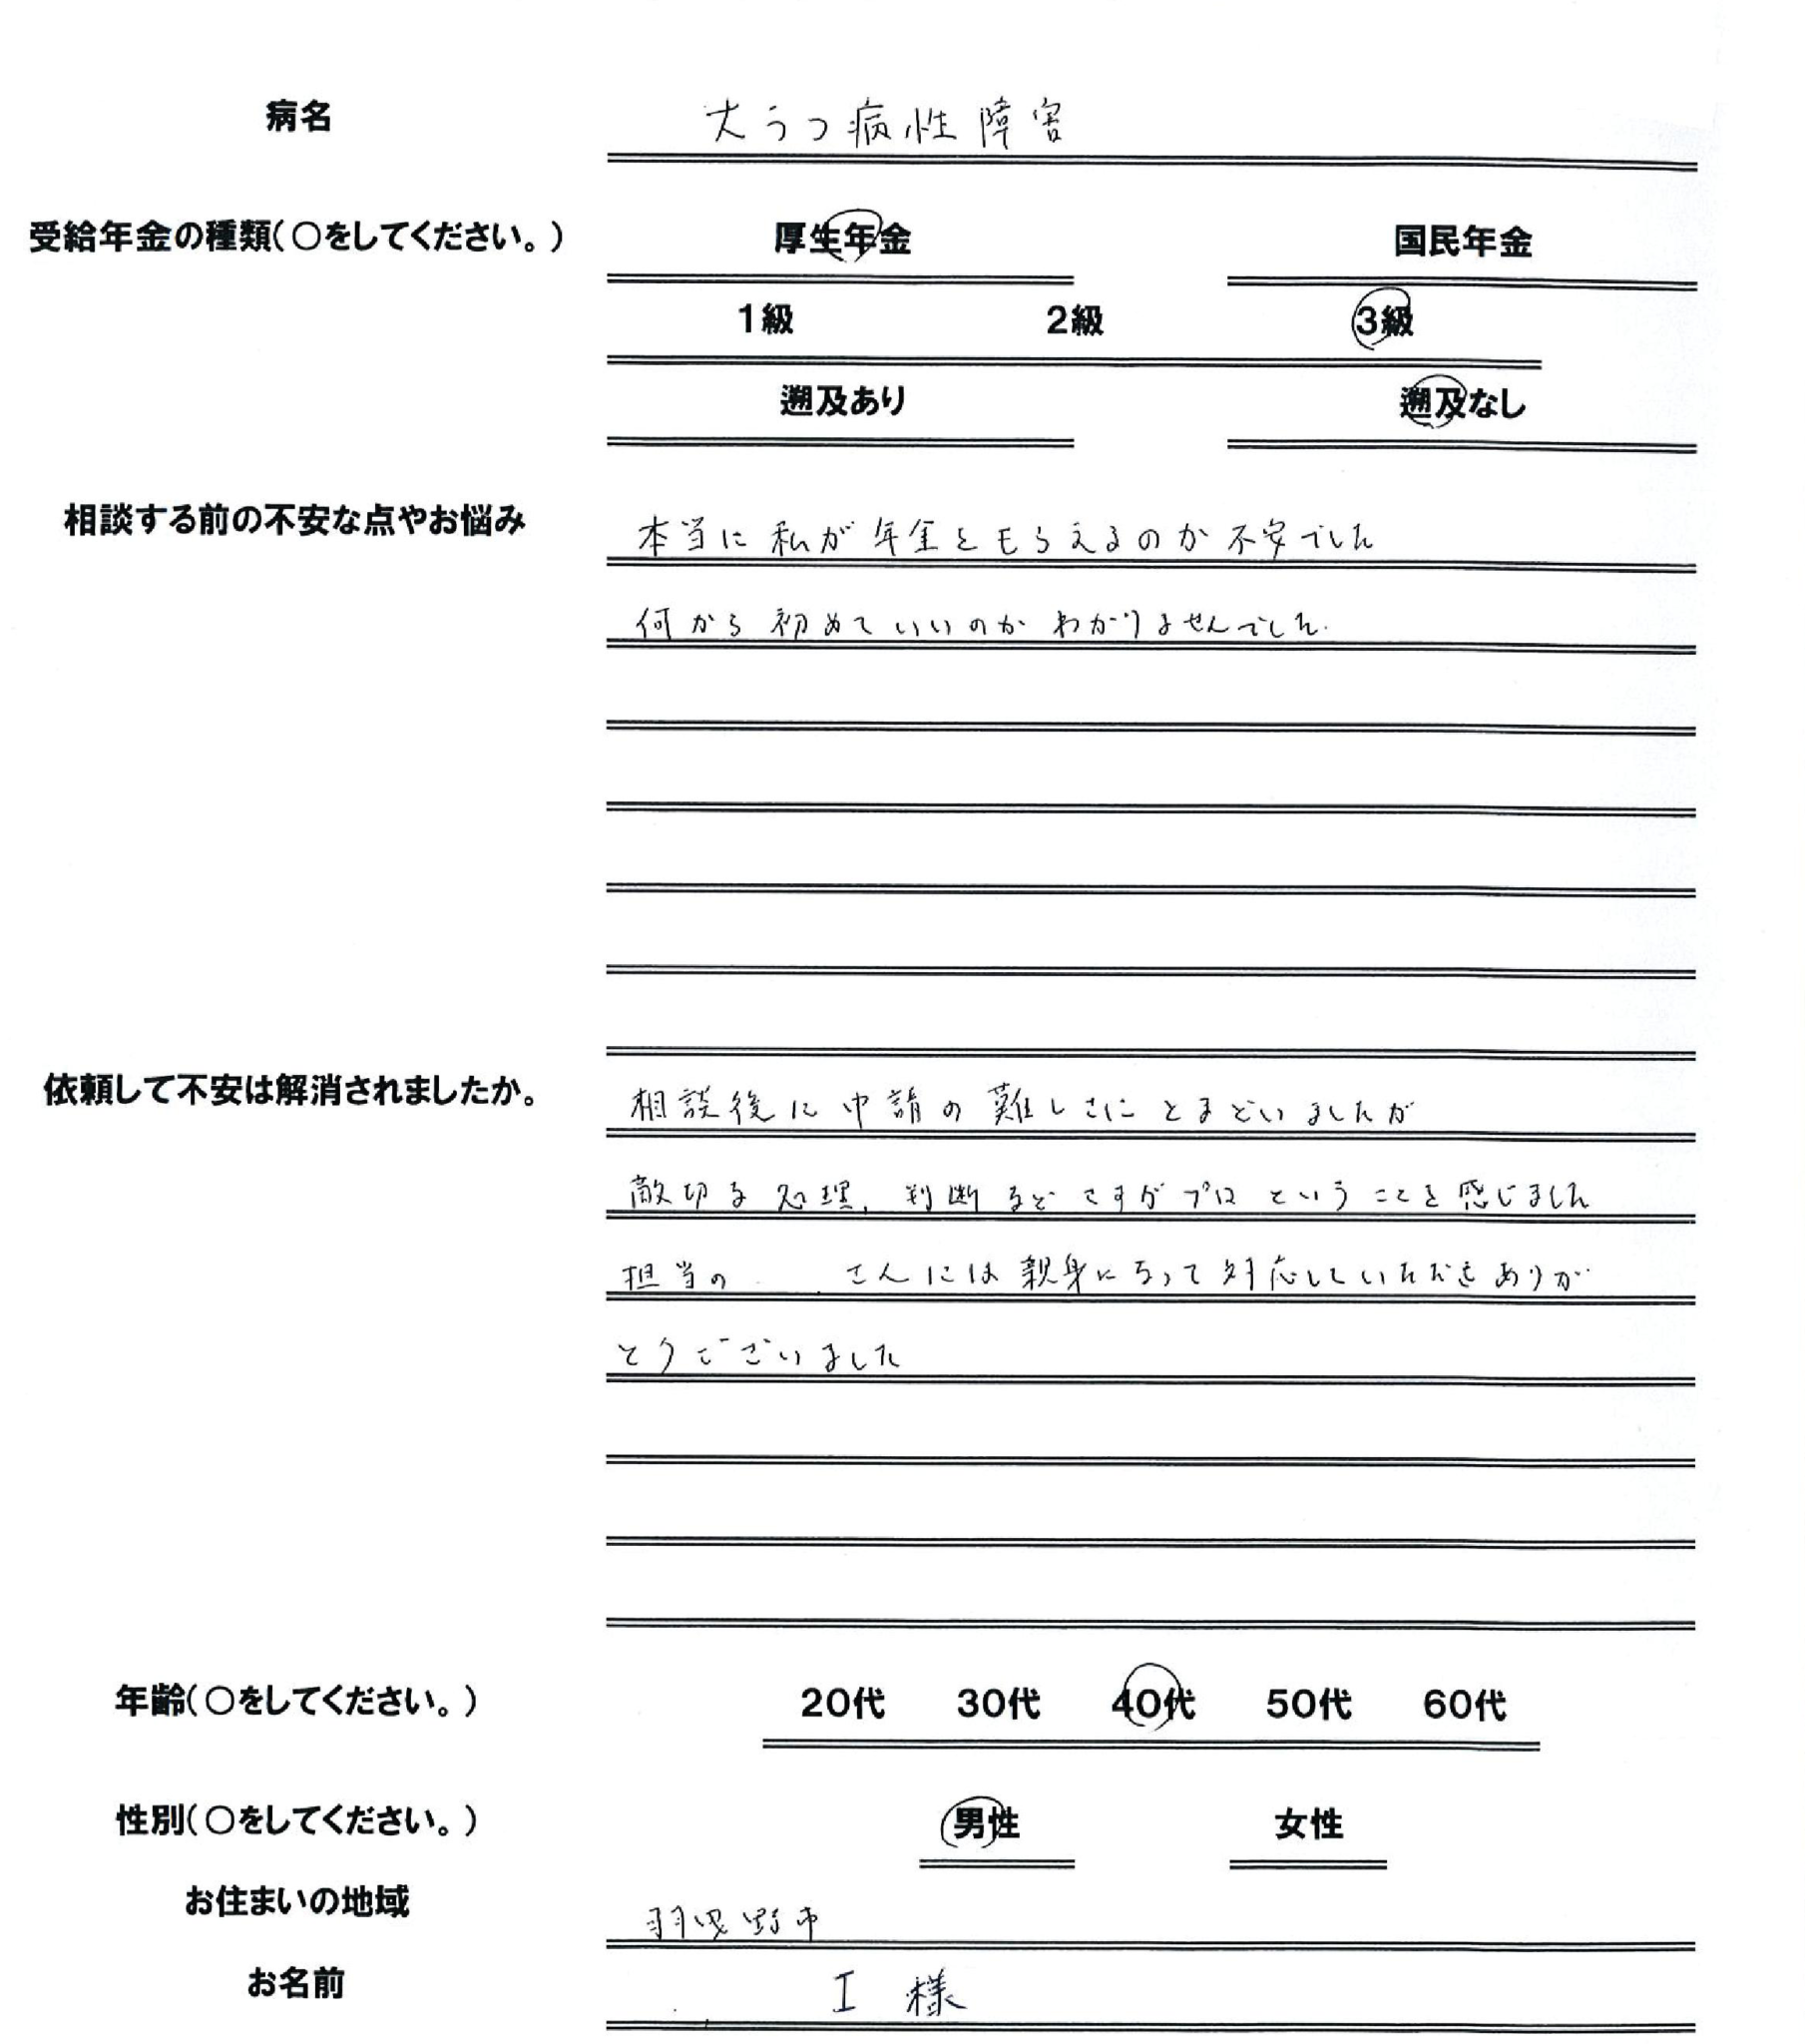 病名 大うつ病性障害
受給年金の種類(○をしてください。) 厚生年金 国民年金
1級 2級 3級
遡及あり 遡及なし
相談する前の不安な点やお悩み 本当に私が年金をもらえるのか不安でした
何から初めていいのかわかりませんでした.
依頼して不安は解消されましたか。 相談後に申請の難しさにとまどいましたが
敵切な処理、判断などさすがプロということを感じました
担当の さんには親身になって対応していただきありが
とうございました
年齢(○をしてください。) 20代 30代 40代 50代 60代
性別(○をしてください。) 男性 女性
お住まいの地域 羽曳野市
お名前 I 様